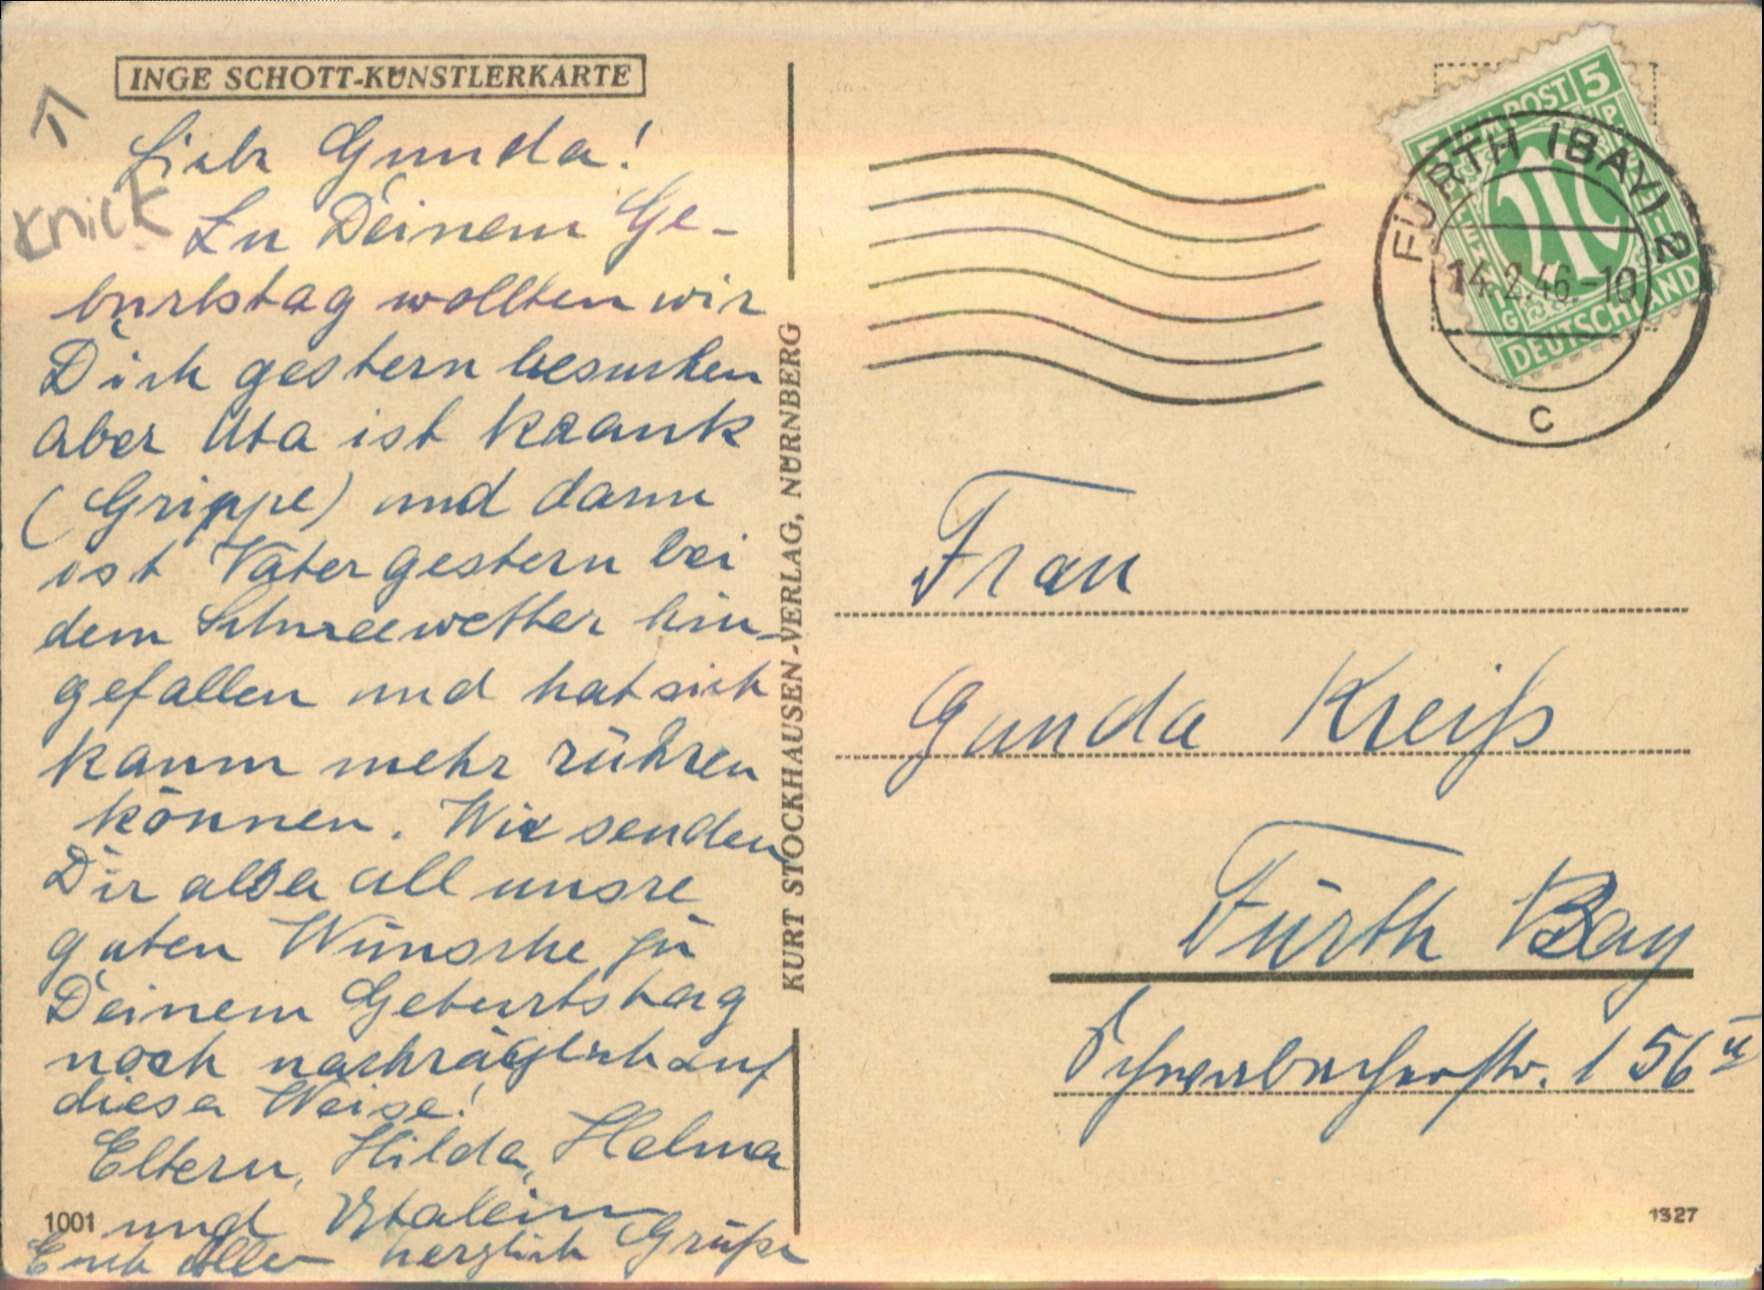 INGE SCHOTT-KÜNSTLERKARTE
Knick
Liebe Gunda!
Zu Deinem Ge-
burtstag wollten wir
Dich gestern besuchen
aber Uta ist krank
(Grippe) und dann
ist Vater gestern bei
dem Schneewetter hin-
gefallen und hat sich
kaum mehr rühren
können. Wir senden
Dir also all unsre
guten Wünsche zu
Deinem Geburtstag
noch nachträglich auf
diese Weise!
Eltern, Hilda, Helma
und Utalein
Euch allen herzlich Grüße
1001
KURT STOCKHAUSEN-VERLAG, NÜRNBERG
5 POST 5
DEUTSCHLAND
FÜRTH (BAY) 2
14.2.46.-10
c
Frau
Gunda Kreiß
Fürth Bay
156 II
1327